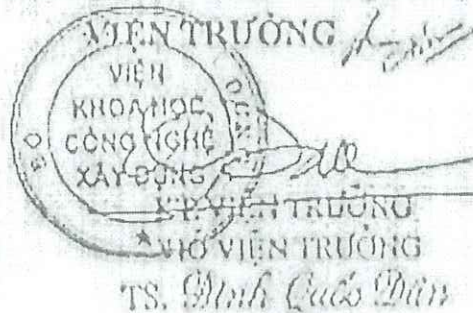 VIỆN TRƯỞNG
VIỆN
KHOA HỌC
CÔNG NGHỆ
XÂY DỰNG
BỘ
K.T. VIỆN TRƯỞNG
PHÓ VIỆN TRƯỞNG
TS. Đinh Quốc Dân